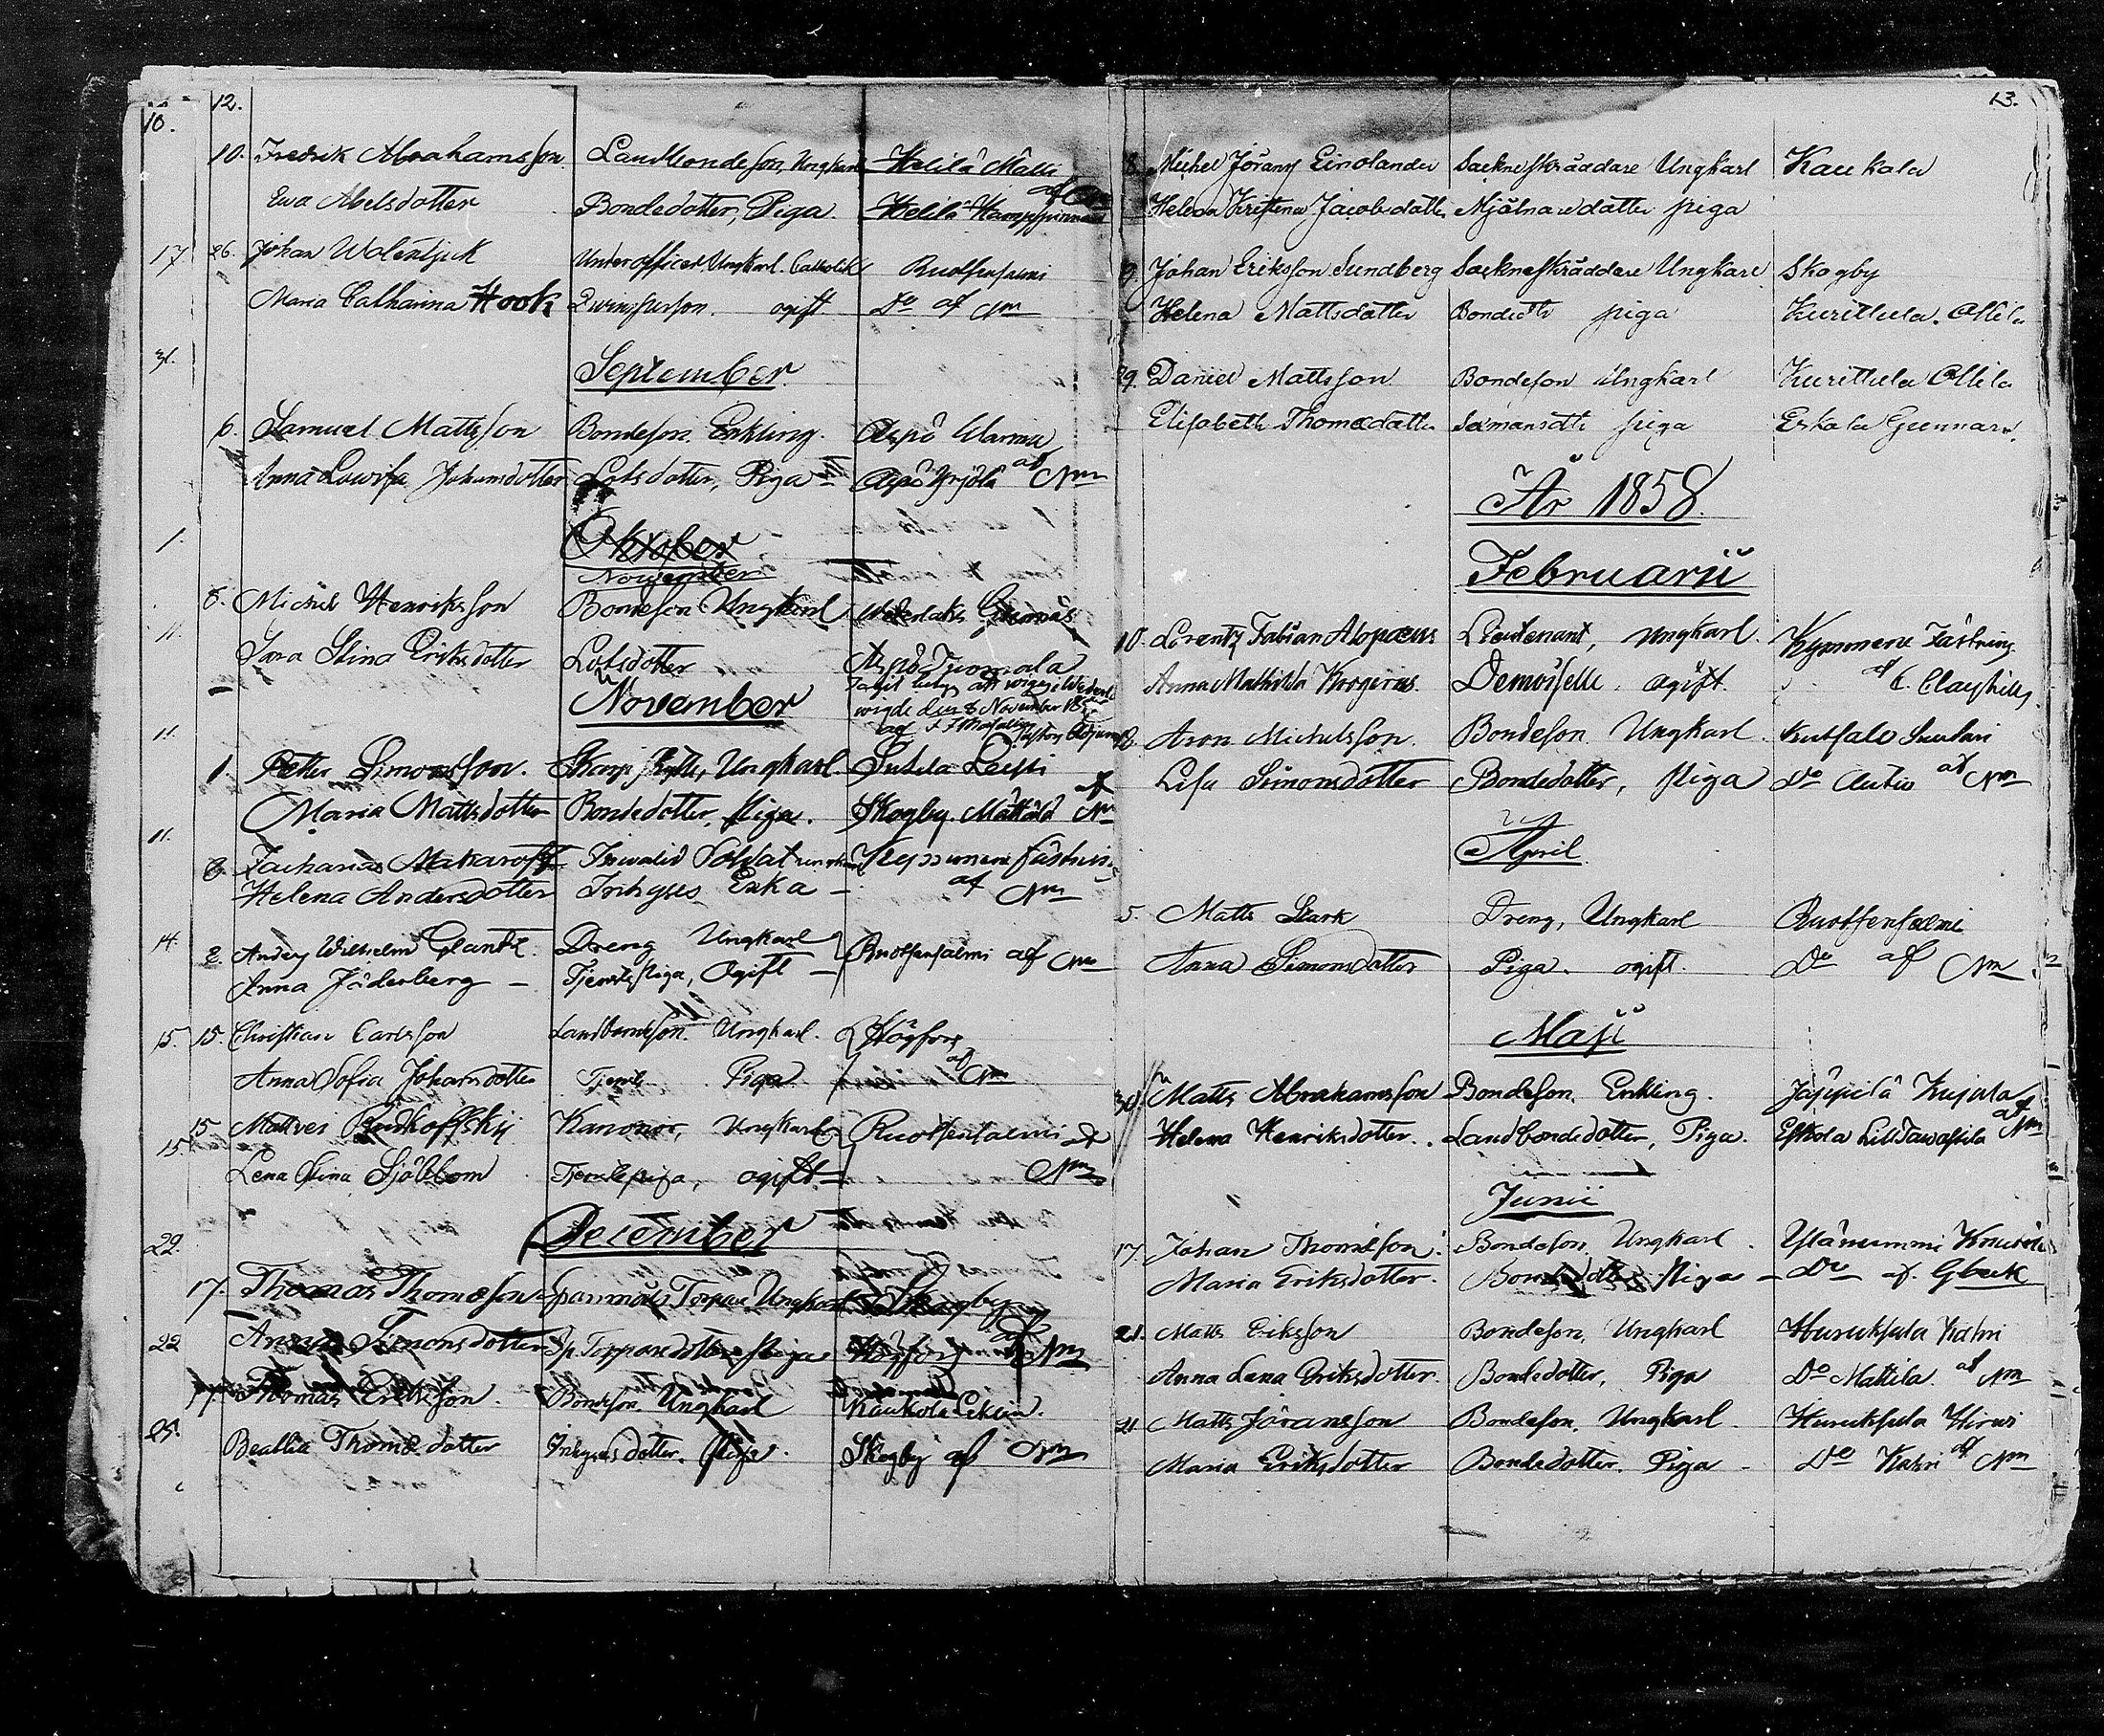 12.
10. Fredrik Abrahamsson Landbondeson, Ungkarl Helilä Matti
Ewa Abelsdotter Bondedotter, Piga Helilä af Nm
26. Johan Wolentjuk Underofficer Ungkarl. Catholik Ruotsensalmi
Maria Catharina Hook Qvinsperson. ogift Do af Nm
September
6. Samuel Mattsson Bondeson Enkling. Aspö
Anna Lowisa Johansdotter Lotsdotter, Piga Aspö Yrjölä af Nm
Oktober
November
8. Michel Henriksson Bondeson Ungkarl Wederlaks
Sara Stina Eriksdotter Lotsdotter Aspö Tuomala
wigde den 8 November
November
1. Petter Simonsson. Ungkarl. Sutela Leppi
Maria Mattsdotter Bondedotter, piga. Skogby Mattila af Nm
8. Zacharias Makaroff Invalid Soldat ungkarl Kymmene fästning
Helena Andersdotter Inhyses Enka af Nm
8. Anders Wilhelm Glantz. Dreng Ungkarl Ruotsensalmi af Nm
Anna Söderberg Tjenstepiga, Ogift
15. Christian Carlsson Landbondeson. Ungkarl. Högfors
Anna Sofia Johansdotter Tjenste Piga af Nm
15 Mattvei Rudkoffskij Kanonir, Ungkarl Ruotsensalmi af
Lena Stina Sjöblom Tjenstepiga, ogift Nm
December
17. Thomas Thomasson Spanmåls Torpare Ungkarl Skogby
Anna Simonsdotter Sp. Torparedotter piga Högfors af Nm
17. Thomas Eriksson. Bondeson Ungkarl Kaukola Eklin.
Beatta Thomædotter Inhysesdotter. piga. Skogby af Nm
10.
17
31.
1.
11.
11.
11.
14.
15.
15.
22.
22
25.
13.
8. Michel Jörans Einolander Sockneskräddare Ungkarl Kaukola
Helena Kristina Jacobsdotter Mjölnaredotter piga
9. Johan Eriksson Sundberg Sockneskräddare Ungkarl Skogby
Helena Mattsdotter Bondedtr piga Kurittula. Ollila
29. Daniel Mattsson Bondeson Ungkarl Kurittula Ollila
Elisabeth Thomædotter piga Eskola Gunnar
År 1858.
Februarii
10. Lorentz Fabian Alopæus Lieutenant, Ungkarl. Kymmene Fästning
Anna Mathilda Krogerus. Demoiselle. ogift. af C. Clayhills
12. Aron Michelsson. Bondeson Ungkarl. Kutsalo Suntari
Lisa Simonsdotter Bondedotter, piga Do Autio af Nm
April.
5. Matts Stark Dreng, Ungkarl Ruotsensalmi
Anna Simonsdotter Piga. ogift. Do af Nm
Maji
30. Matts Abrahamsson Bondeson. Enkling. Jäppilä Kujala
Helena Henriksdotter. Landbondedotter, Piga. Eskola Lilltawastila af Nm
Junii
17. Johan Thomæsson. Bondeson. Ungkarl. Ylänummi Knuutila
Maria Eriksdotter. Bondedotter Piga Do af. Gbeck
21. Matts Eriksson Bondeson, Ungkarl Huruksela Kahri
Anna Lena Eriksdotter. Bondedotter, Piga Do Mattila. af Nm
21 Matts Göransson Bondeson. Ungkarl. Huruksela Hirvi
Maria Eriksdotter Bondedotter. Piga Do Kahri af Nm